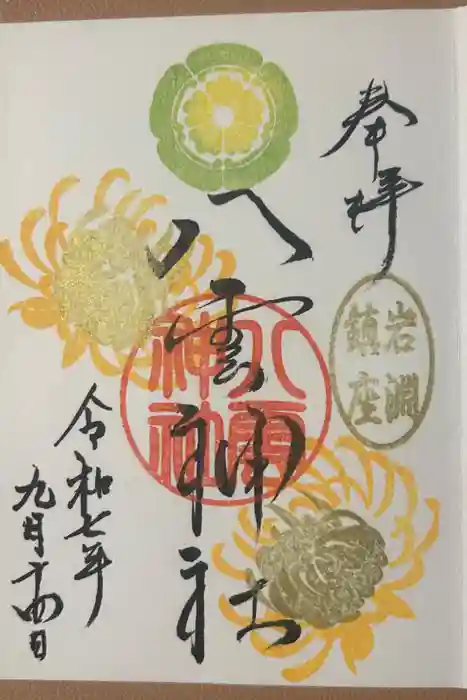 奉拝
岩淵
鎮座
八雲神社
八雲
神社
令和七年
九月十四日